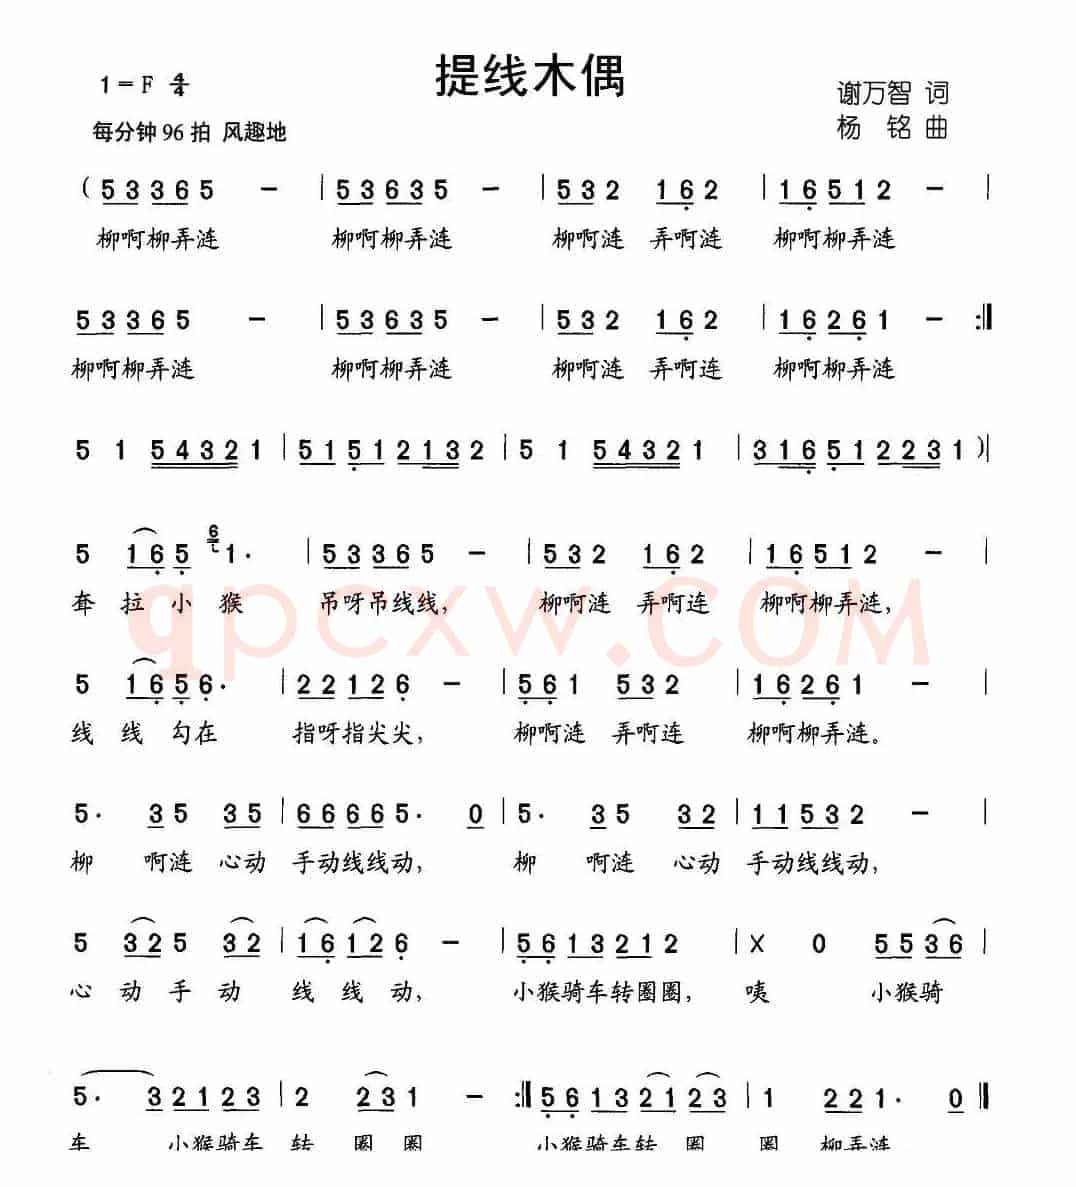 提线木偶
1=F 4/4
谢万智 词
每分钟96拍 风趣地
杨 铭 曲
( 5 3 3 6 5 - | 5 3 6 3 5 - | 5 3 2 1 6 2 | 1 6 5 1 2 - |
柳啊柳弄涟 柳啊柳弄涟 柳啊涟 弄啊涟 柳啊柳弄涟
5 3 3 6 5 - | 5 3 6 3 5 - | 5 3 2 1 6 2 | 1 6 2 6 1 - :‖
柳啊柳弄涟 柳啊柳弄涟 柳啊涟 弄啊连 柳啊柳弄涟
5 1 5 4 3 2 1 | 5 1 5 1 2 1 3 2 | 5 1 5 4 3 2 1 | 3 1 6 5 1 2 2 3 1 )|
5 1 6 5 6 1· | 5 3 3 6 5 - | 5 3 2 1 6 2 | 1 6 5 1 2 - |
牵 拉 小 猴 吊呀吊线线, 柳啊涟 弄啊连 柳啊柳弄涟,
qpcxw.COM
5 1 6 5 6· | 2 2 1 2 6 - | 5 6 1 5 3 2 | 1 6 2 6 1 - |
线 线 勾在 指呀指尖尖, 柳啊涟 弄啊连 柳啊柳弄涟。
5· 3 5 3 5 | 6 6 6 6 5· 0 | 5· 3 5 3 2 | 1 1 5 3 2 - |
柳 啊涟 心动 手动线线动, 柳 啊涟 心动 手动线线动,
5 3 2 5 3 2 | 1 6 1 2 6 - | 5 6 1 3 2 1 2 | X 0 5 5 3 6 |
心 动 手 动 线 线 动, 小猴骑车转圈圈, 咦 小猴骑
5· 3 2 1 2 3 | 2 2 3 1 - :‖ 5 6 1 3 2 1 2 3 | 1 2 2 1· 0 ‖
车 小猴骑车 转 圈 圈 小猴骑车转 圈 圈 柳弄涟